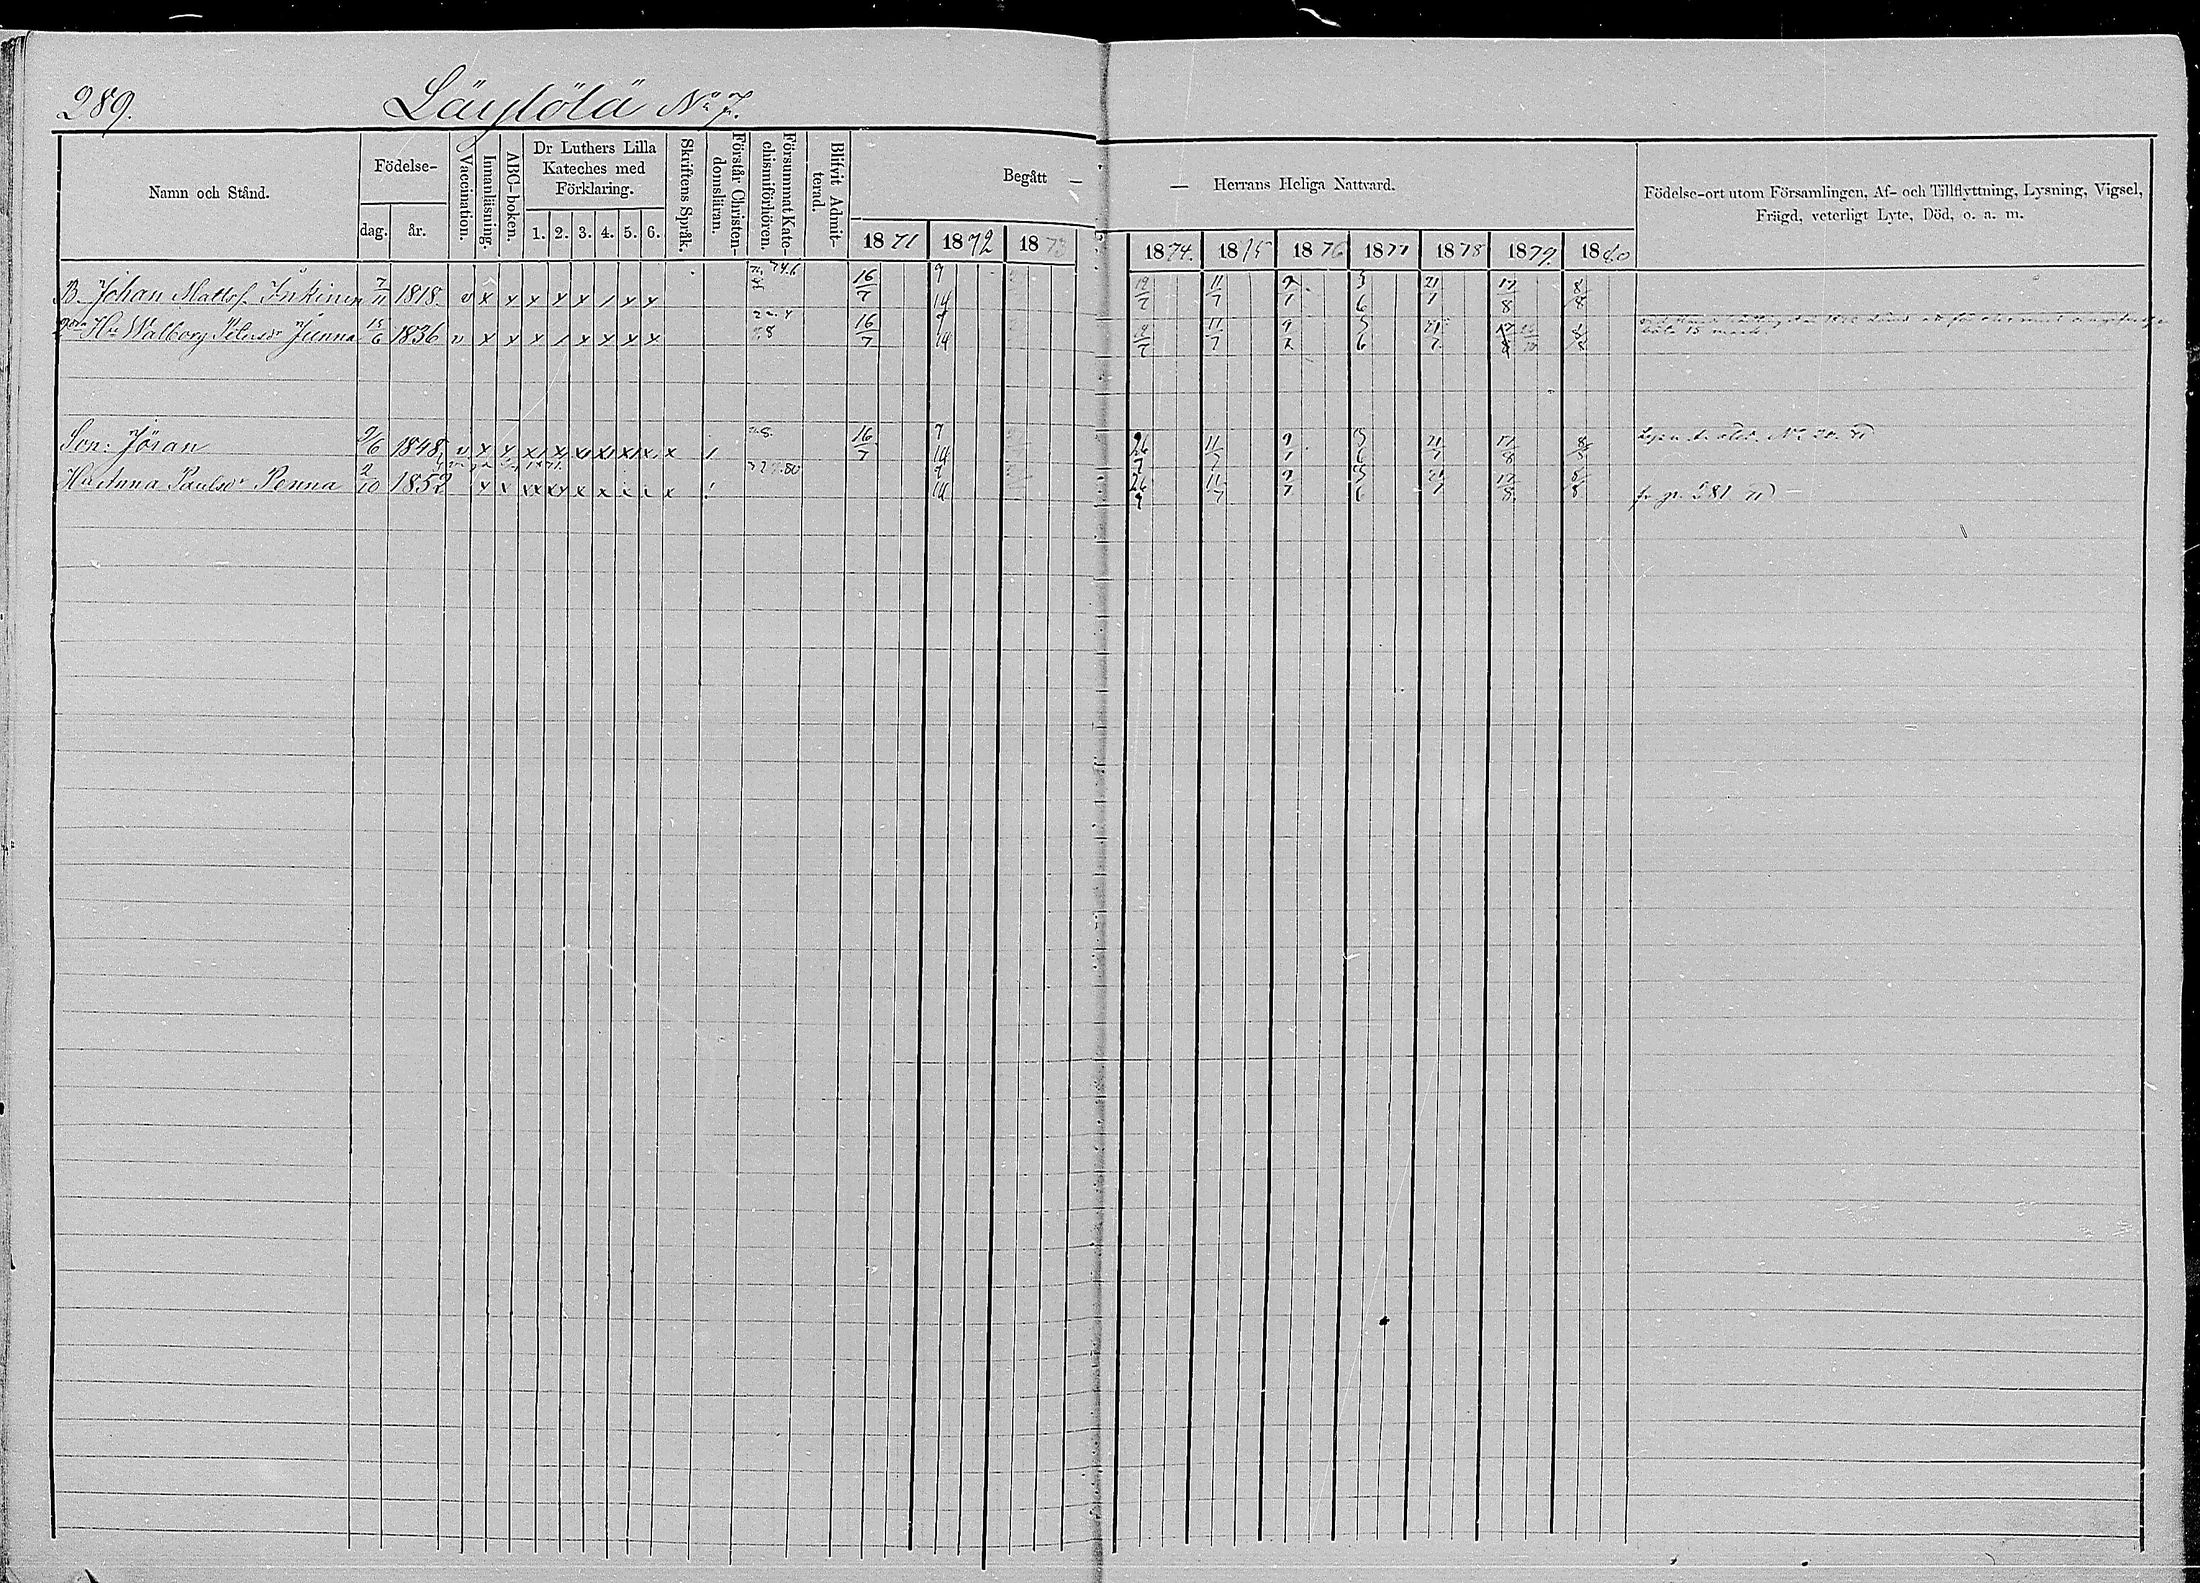 289. Läylölä No 7.
Namn och Stånd.
Födelse-
dag. år.
Vaccination.
Innanläsning.
ABC-boken.
Dr Luthers Lilla
Kateches med
Förklaring.
1. 2. 3. 4. 5. 6.
Skriftens Språk.
Förstår Christen-
domsläran.
Försummat Kate-
chismiförhören.
Blifvit Admit-
terad.
Begått — — Herrans Heliga Nattvard.
1871 1872 1873 1874. 1875 1876 1877 1878 1879. 1880
Födelse-ort utom Församlingen, Af- och Tillflyttning, Lysning, Vigsel,
Frägd, veterligt Lyte, Död, o. a. m.
B. Johan Matts. Inkinen 7/11 1818 v x x x x x / x x 16/7 9/14 19/7 11/7 9/7 3/6 21/7 17/8 8/8
Hu Walborg Petersdr Junna 15/6 1836 v x x x / x x x x 16/7 9/14 19/7 11/7 9/7 3/6 21/7 17/8 8/8
Son: Jöran 9/6 1848 v x x x x x x x x x / 16/7 9/14 26/7 11/7 9/7 3/6 21/7 17/8 8/8
Hu Anna Paulsdr Penna 2/10 1852 9/14 26/9 11/7 9/7 3/6 21/7 17/8 8/8 fr. p. 281